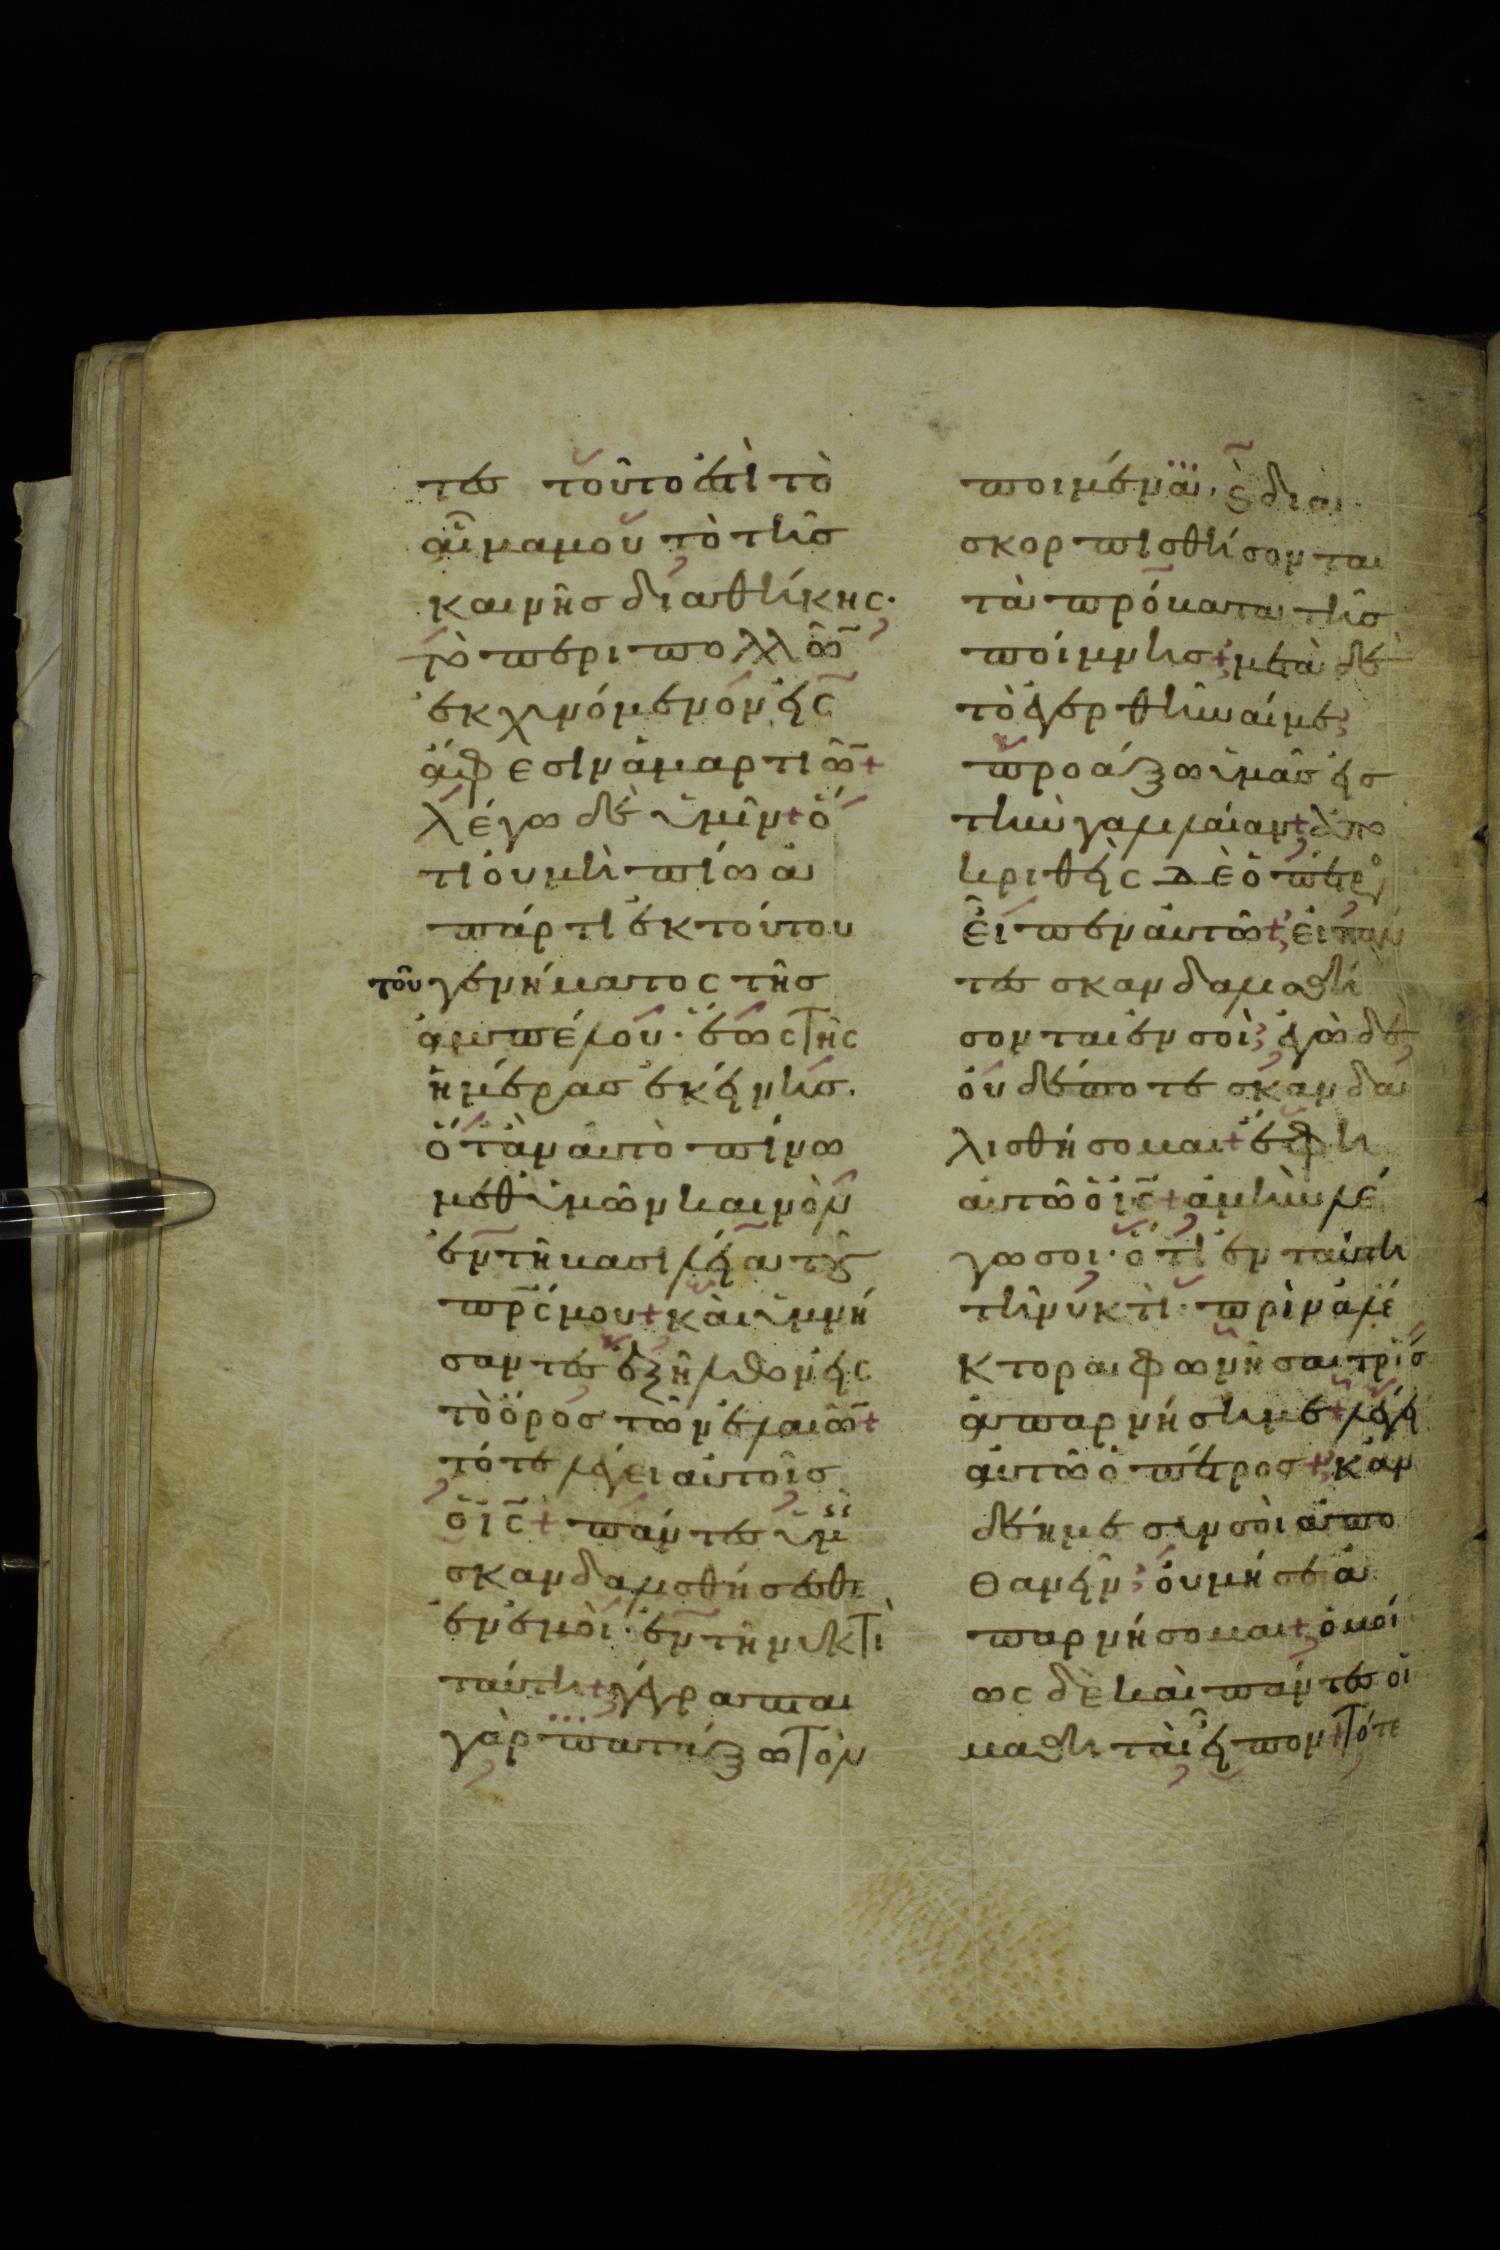 τες τοῦτο ἐστὶ τὸ
αἷμα μου τὸ τῆς
καινῆς διαθήκης·
τὸ περι πολλῶ̅
ἐκχυνόμενον εἰς
ἄφεσιν ἁμαρτιῶ̅ +
λέγω δὲ ὑμῖν + ὅ
τι οὐ μὴ πίω ἀ
πάρτι ἐκ τούτου
τοῦ γενήματος τῆς
ἀμπέλου· ἕως τῆς
ἡμέρας ἐκείνης·
ὅταν αὐτὸ πίνω
μεθ ὑμῶν καινὸν
ἐν τῆ βασιλεία τοῦ
πρ̅ς μου + καὶ ὑμνή
σαντες ἐξῆλθον εἰς
τὸ ὄρος τῶν ἐλαιῶ̅ +
τότε λέγει αὐτοῖς
ὁ ις̅ + πάντες ὑμεῖ
σκανδαλισθήσεσθε
ἐν ἐμοὶ· ἐν τῆ νυκτὶ
ταύτη + γέγραπται
γὰρ πατάξω τὸν
ποιμένα· ϗ̀ δια
σκορπισθήσονται
τὰ πρόβατα τῆς
ποίμνης + μετὰ δὲ
τὸ ἐγερθῆναί με
προάξω ὑμᾶς εἰς
τὴν γαλιλαίαν + ἀπο
κριθεὶς δὲ ὁ πέτρο
εἶπεν αὐτῶ + εἰ πάν
τες σκανδαλισθή
σονται ἐν σοὶ ἐγὼ δὲ
οὐδέποτε σκανδα
λισθήσομαι + ἔφη
αὐτῶ ὁ ις̅ + ἀμὴν λέ
γω σοι· ὅτι ἐν ταύτη
τῆ νυκτὶ· πρὶν ἀλέ
κτορα φωνῆσαι τρὶς
ἀπαρνήση με + λέγει
αὐτῶ ὁ πέτρος + κἀν
δέη με σὺν σοὶ ἀπο
θανεῖν οὐ μή σε ἀ
παρνήσομαι + ὁμοί
ως δὲ καὶ πάντες οἱ
μαθηταὶ εἶπον + Τότε